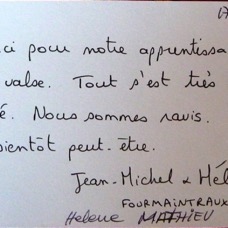 ci pour notre apprentissa
valse. Tout s'est très
é. Nous sommes ravis.
bientôt peut-être.
Jean-Michel & Hél
FOURMAINTRAUX
Helene MATHIEU